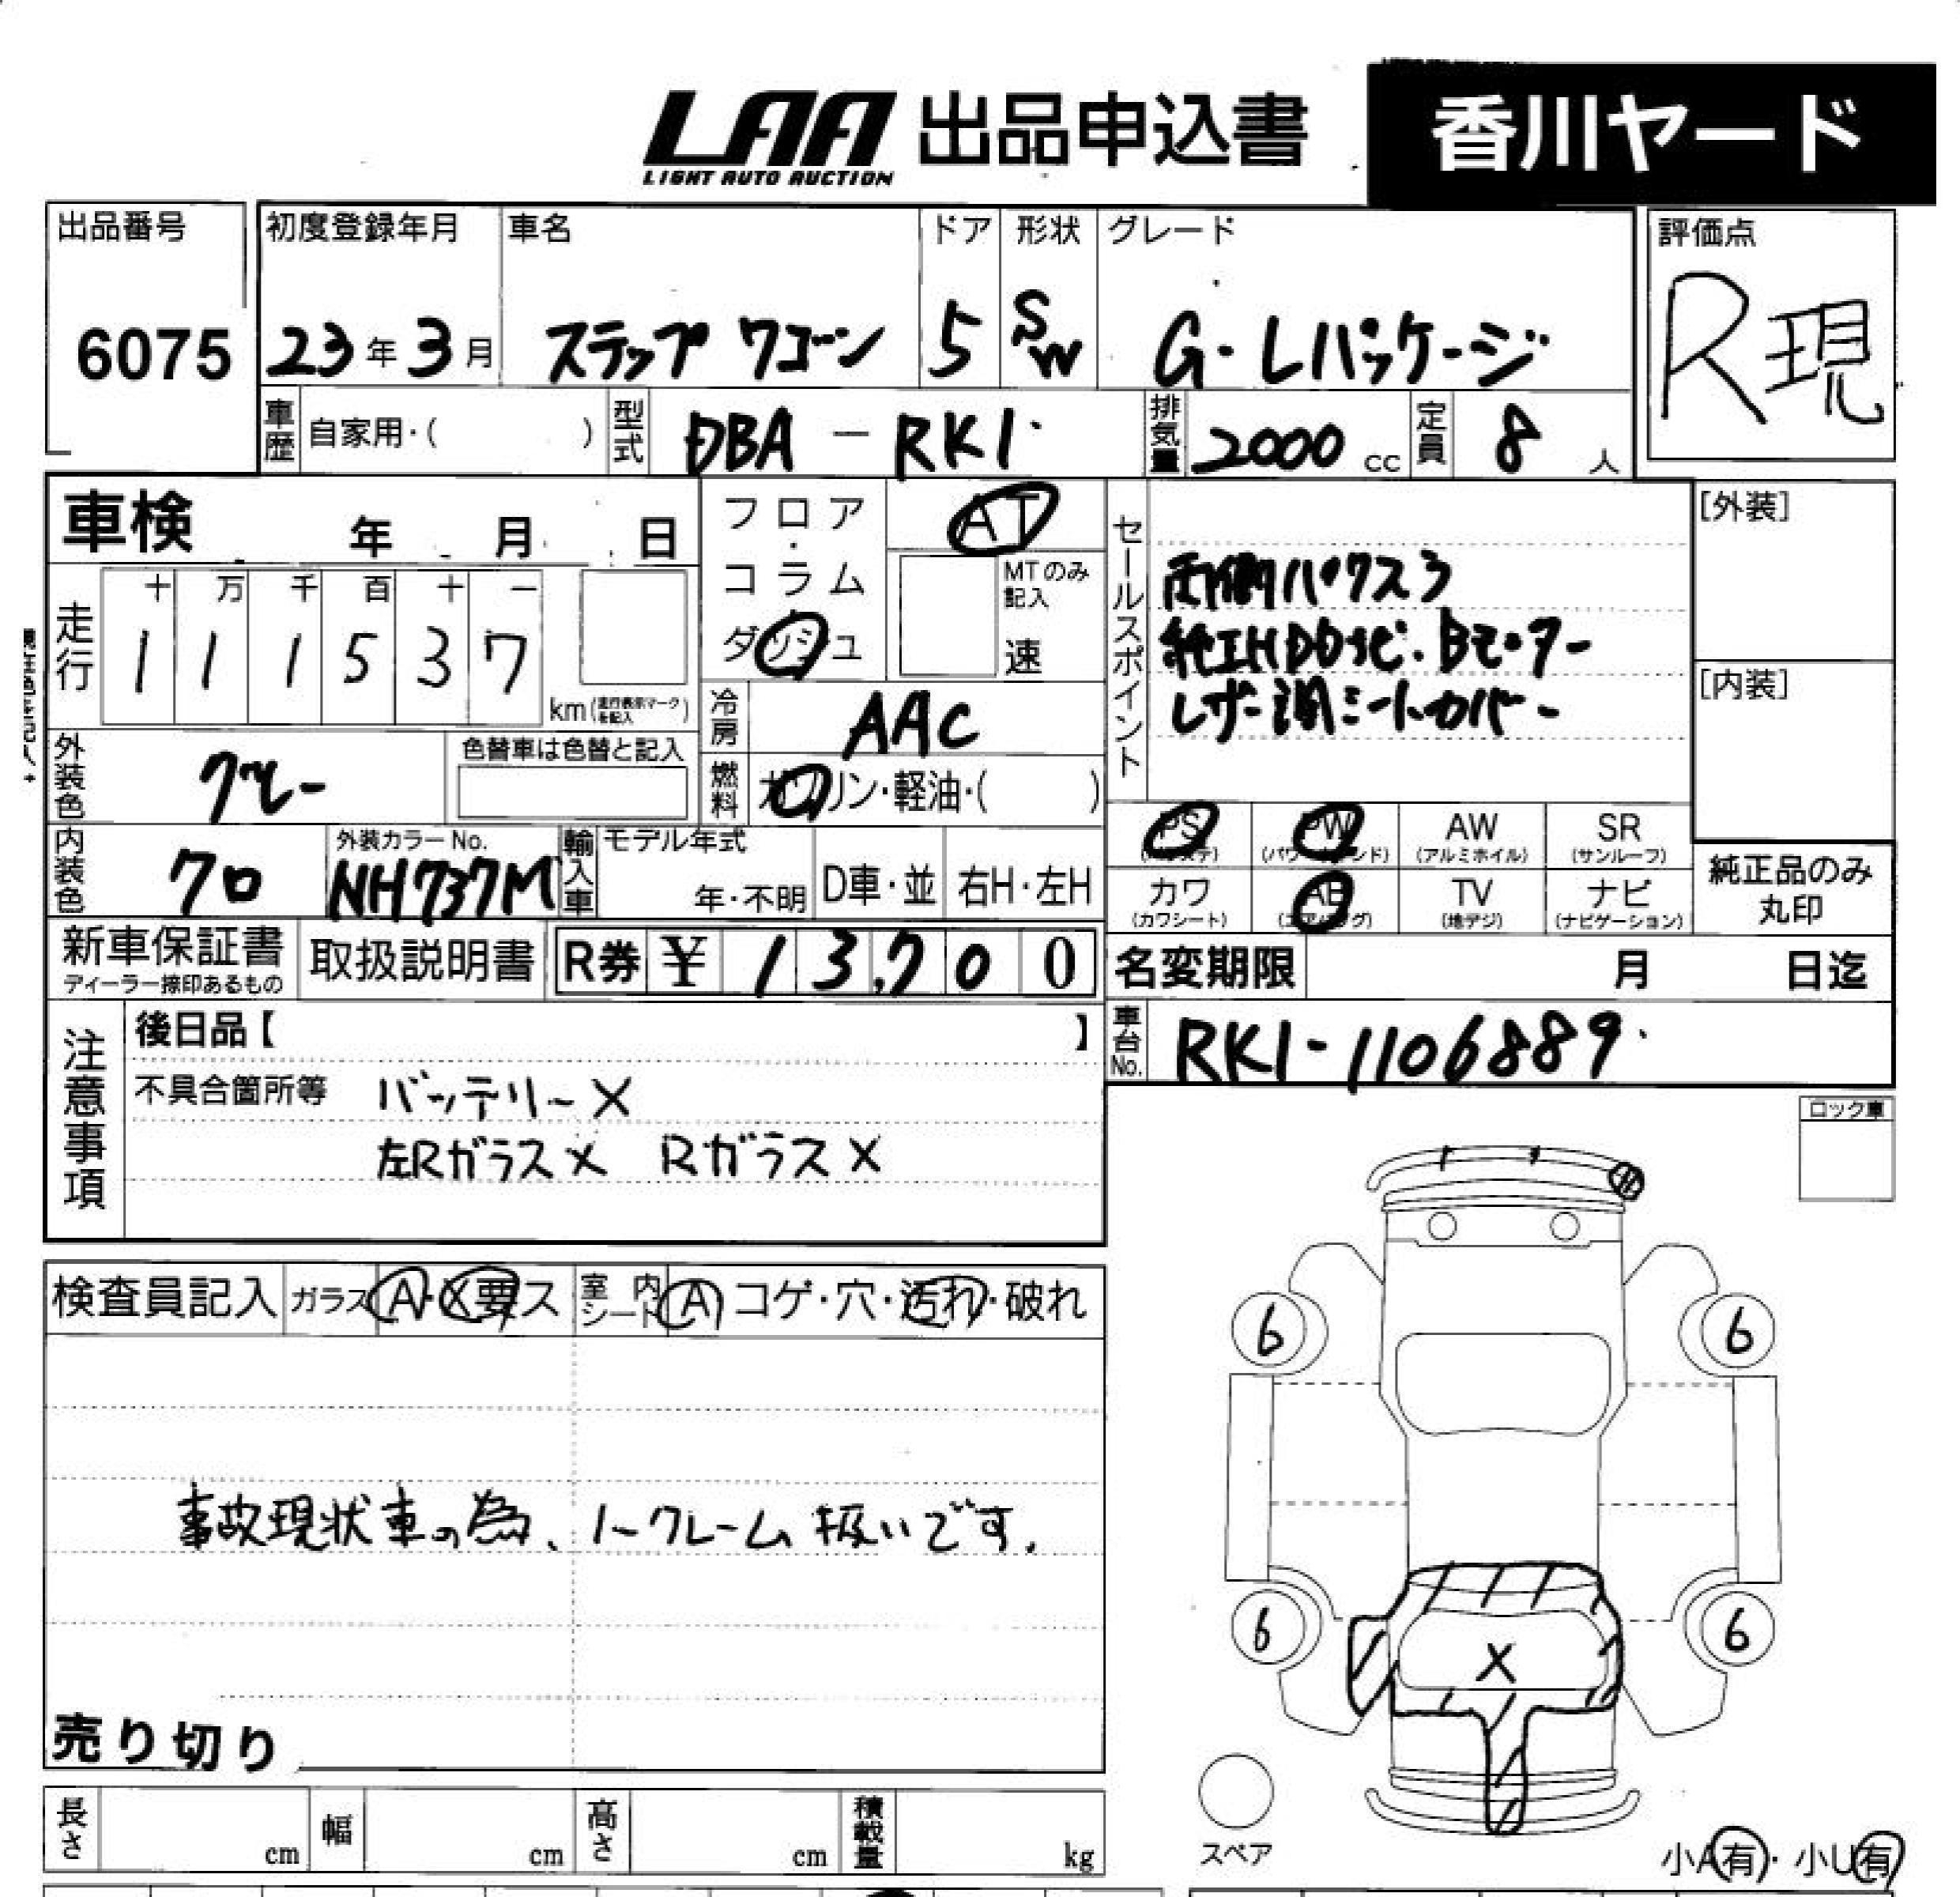 LAA 出品申込書 香川ヤード
LIGHT AUTO AUCTION
出品番号 初度登録年月 車名 ドア 形状 グレード 評価点
6075 23年3月 ステップワゴン 5 SW G・Lパッケージ R現
車歴 自家用・( ) 型式 DBA-RK1 排気量 2000cc 定員 8人
車検 年 月 日 フロア・コラム ダッシュ AT
MTのみ記入 速
走行 十 万 千 百 十 一
1 1 1 5 3 7 km(走行表示マークを記入)
セールスポイント
両側パワスラ
純正HDDナビ・Bモニター
レザー調シートカバー
[外装]
[内装]
冷房 AAC
外装色 グレー 色替車は色替と記入
燃料 ガソリン・軽油・( )
PS PW AW SR
(パワステ) (パワーウィンド) (アルミホイル) (サンルーフ)
内装色 クロ 外装カラーNo. NH737M 輸入車 モデル年式 年・不明 D車・並 右H・左H
カワ AB TV ナビ
(カワシート) (エアバッグ) (地デジ) (ナビゲーション)
純正品のみ丸印
新車保証書 取扱説明書 R券 ¥ 13,700 名変期限 月 日迄
ディーラー捺印あるもの
注意事項 後日品【 】
車台No. RK1-1106889
不具合箇所等 バッテリー×
左Rガラス× Rガラス×
ロック車
検査員記入 ガラス A・X要ス 室内シート A コゲ・穴・汚れ・破れ
6 6
事故現状車の為、ノークレーム扱いです。
6 X 6
売り切り
スペア
長さ cm 幅 cm 高さ cm 積載量 kg
小A有・小U有